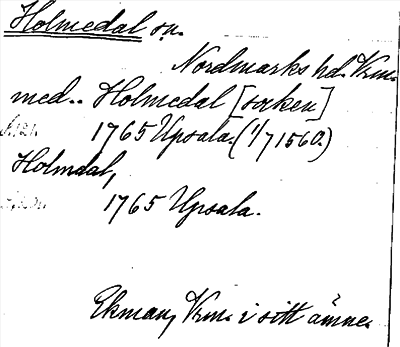 Holmedal sn.
Nordmarks hd. Vrm.
med.. Holmedal [socken]
1765 Upsala. (1/7 1560.)
Holmdal,
1765 Upsala.
Ekman, Vrm. i sitt ämne.